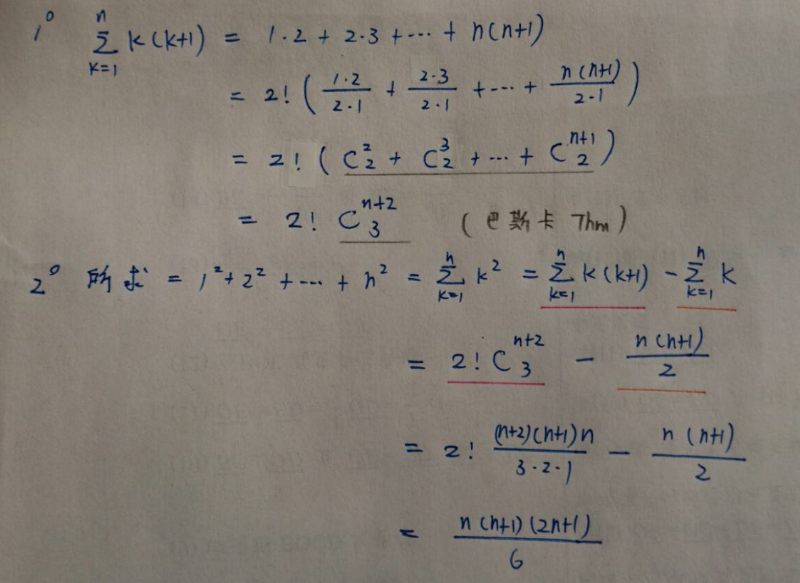 1° \sum_{k=1}^{n} k(k+1) = 1·2 + 2·3 + ··· + n(n+1)
= 2! ( \frac{1·2}{2·1} + \frac{2·3}{2·1} + ··· + \frac{n(n+1)}{2·1} )
= 2! ( C_2^2 + C_2^3 + ··· + C_2^{n+1} )
= 2! C_3^{n+2} ( 巴斯卡 Thm )
2° 所求 = 1^2 + 2^2 + ··· + n^2 = \sum_{k=1}^{n} k^2 = \sum_{k=1}^{n} k(k+1) - \sum_{k=1}^{n} k
= 2! C_3^{n+2} - \frac{n(n+1)}{2}
= 2! \frac{(n+2)(n+1)n}{3·2·1} - \frac{n(n+1)}{2}
= \frac{n(n+1)(2n+1)}{6}